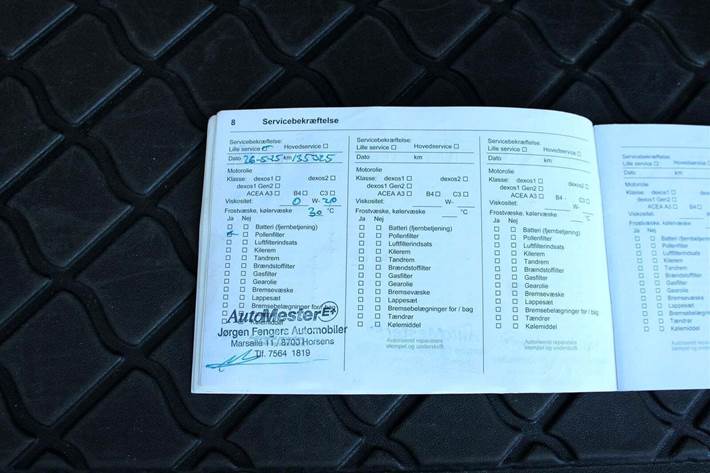 8 Servicebekræftelse
Servicebekræftelse:
Lille service Hovedservice
Dato 26-5-25 km 135025
Motorolie
Klasse: dexos1 dexos2
dexos1 Gen2
ACEA A3 B4 C3
Viskositet: 0 W- 20
Frostvæske, kølervæske 30 °C
Ja Nej
Batteri (fjernbetjening)
Pollenfilter
Luftfilterindsats
Kilerem
Tandrem
Brændstoffilter
Gasfilter
Gearolie
Bremsevæske
Lappesæt
Bremsebelægninger for / bag
AutoMester E+
Kølemiddel
Jørgen Fengers Automobiler
Marsalle 11, 8700 Horsens
Tlf. 7564 1819
Servicebekræftelse:
Lille service Hovedservice
Dato km
Motorolie
Klasse: dexos1 dexos2
dexos1 Gen2
ACEA A3 B4 C3
Viskositet: W-
Frostvæske, kølervæske °C
Ja Nej
Batteri (fjernbetjening)
Pollenfilter
Luftfilterindsats
Kilerem
Tandrem
Brændstoffilter
Gasfilter
Gearolie
Bremsevæske
Lappesæt
Bremsebelægninger for / bag
Tændrør
Kølemiddel
Autoriseret reparatørs
stempel og underskrift
Servicebekræftelse:
Lille service Hovedservice
Dato km
Motorolie
Klasse: dexos1 dexos2
dexos1 Gen2
ACEA A3 B4 C3
Viskositet: W-
Frostvæske, kølervæske °C
Ja Nej
Batteri (fjernbetjening)
Pollenfilter
Luftfilterindsats
Kilerem
Tandrem
Brændstoffilter
Gasfilter
Gearolie
Bremsevæske
Lappesæt
Bremsebelægninger for / bag
Tændrør
Kølemiddel
Autoriseret reparatørs
stempel og underskrift
Servicebekræftelse:
Lille service
Dato
Motorolie
Klasse: dexos1
dexos1 Gen2
ACEA A3
Viskositet:
Frostvæske, kølervæske
Ja Nej
Batteri (fjernbetjening)
Pollenfilter
Luftfilterindsats
Kilerem
Tandrem
Brændstoffilter
Gasfilter
Gearolie
Bremsevæske
Lappesæt
Bremsebelægninger
Tændrør
Kølemiddel